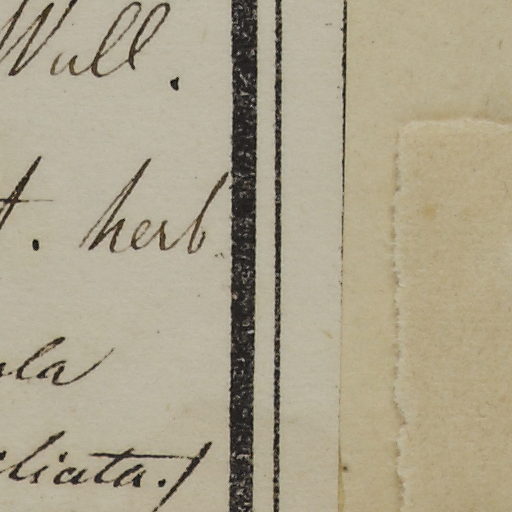 Wall.
t. herb
ula
iliata.)